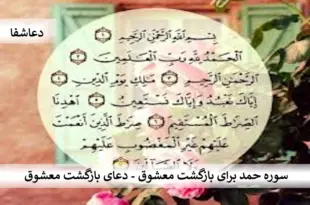 دعاشفا
بِسْمِ اللَّهِ الرَّحْمَٰنِ الرَّحِيمِ
الْحَمْدُ لِلَّهِ رَبِّ الْعَالَمِينَ
الرَّحْمَٰنِ الرَّحِيمِ مَالِكِ يَوْمِ الدِّينِ
إِيَّاكَ نَعْبُدُ وَإِيَّاكَ نَسْتَعِينُ اهْدِنَا
الصِّرَاطَ الْمُسْتَقِيمَ صِرَاطَ الَّذِينَ أَنْعَمْتَ
عَلَيْهِمْ غَيْرِ الْمَغْضُوبِ عَلَيْهِمْ
سوره حمد برای بازگشت معشوق - دعای بازگشت معشوق